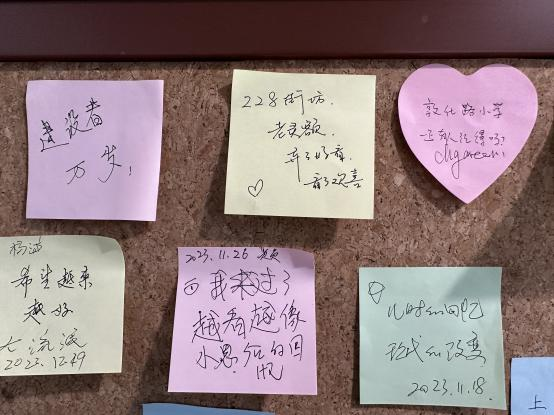 建设者
万岁!
228街坊.
老灵额.
弄了好看.
看了欢喜
敦化路小学
还有人记得吗?
杨浦
希望越来
越好
大流流
2023.12.19
2023.11.26
我来过了
越看越像
小思
儿时的回忆
现代的改变
2023.11.18.
上